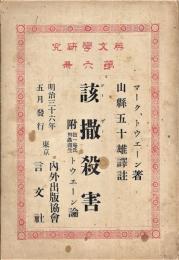 英文學研究
第六册
マーク、トウエーン著
山縣五十雄譯註
該撒殺害
附 トウエーン論
明治三十六年
五月發行
東京
內外出版協會
言文社